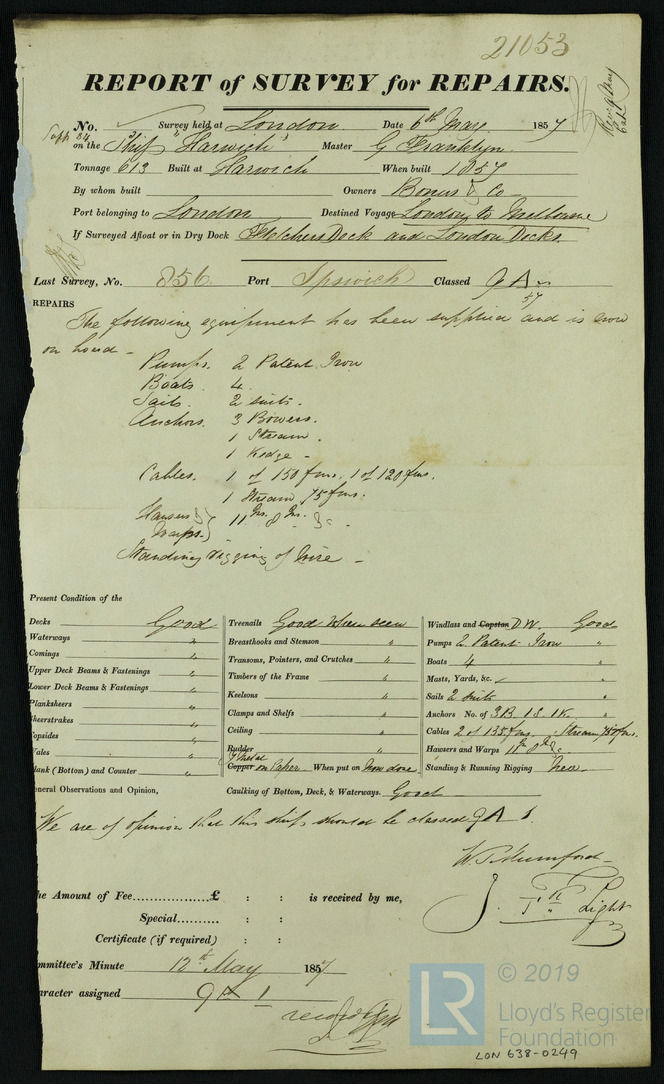 21053
REPORT of SURVEY for REPAIRS.
No. Survey held at London Date 6th May 1857
on the Ship "Harwich" Master G Franklyn
Tonnage 613 Built at Harwich When built 1857
By whom built Owners Bonus & Co
Port belonging to London Destined Voyage London to Melbourne
If Surveyed Afloat or in Dry Dock Fletchers Dock and London Docks
Last Survey, No. 856 Port Ipswich Classed 9 A
57
REPAIRS
The following equipment has been supplied and is now
on board -
Pumps. 2 Patent Iron
Boats 4
Sails. 2 suits.
Anchors. 3 Bowers.
1 Stream.
1 Kedge -
Cables. 1 of 150 fms. 1 of 120 fms.
1 Stream 75 fms.
Hawsers & Warps. 11 Ins. 8 Ins. &c.
Standing rigging of Wire -
Present Condition of the
Decks Good
Waterways "
Comings "
Upper Deck Beams & Fastenings "
Lower Deck Beams & Fastenings "
Planksheers "
Sheerstrakes "
opsides "
Wales "
lank (Bottom) and Counter "
eneral Observations and Opinion,
Treenails Good Where seen
Breasthooks and Stemson "
Transoms, Pointers, and Crutches "
Timbers of the Frame "
Keelsons "
Clamps and Shelfs "
Ceiling "
Rudder "
Y Metal
Copper on Paper When put on Now done
Caulking of Bottom, Deck, & Waterways. Good
Windlass and Capstan D.W. Good
Pumps 2 Patent Iron "
Boats 4 "
Masts, Yards, &c. "
Sails 2 suits "
Anchors No. of 3B. 1S. 1K. "
Cables 2 of 135 fms. Stream 75 fms.
Hawsers and Warps 11 In 8 In &c
Standing & Running Rigging New
We are of opinion that this ship should be classed 9 A 1.
W. T. Mumford
J. Light
he Amount of Fee..................£ : : is received by me,
Special.......... : :
Certificate (if required) : :
mmittee's Minute 12th May 1857
aracter assigned 9 A 1
LR
© 2019
Lloyd's Register
Foundation
LON 638-0249